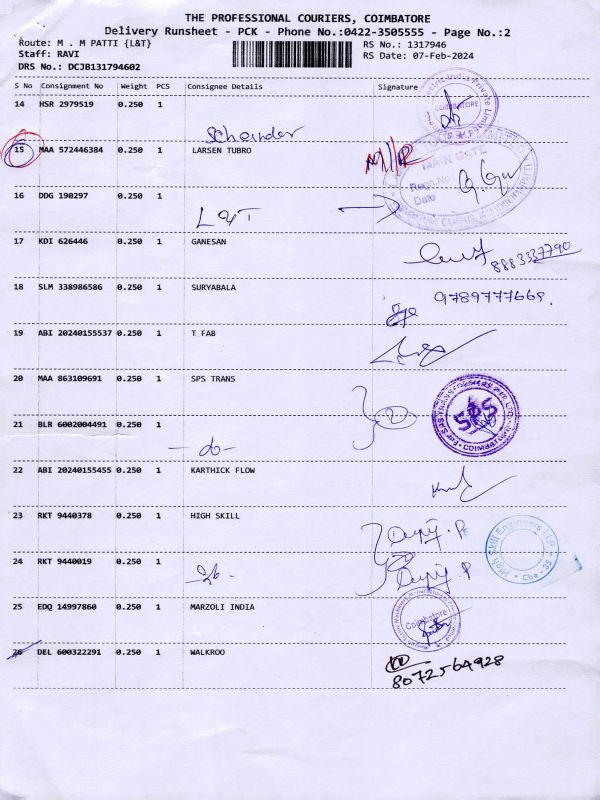 THE PROFESSIONAL COURIERS, COIMBATORE
Delivery Runsheet - PCK - Phone No.:0422-3505555 - Page No.:2
Route: M . M PATTI {L&T} RS No.: 1317946
Staff: RAVI RS Date: 07-Feb-2024
DRS No.: DCJB131794602
S No Consignment No Weight PCS Consignee Details Signature
14 HSR 2979519 0.250 1
COIMBATORE
15 MAA 572446384 0.250 1 LARSEN TUBRO
MAIN GATE
Regn.No
Date
16 DDG 190297 0.250 1
L&T
17 KDI 626446 0.250 1 GANESAN
8883337790
18 SLM 338986586 0.250 1 SURYABALA
9789777669.
19 ABI 20240155537 0.250 1 T FAB
20 MAA 863109691 0.250 1 SPS TRANS
2
SPS
COIMBATORE
21 BLR 6002004491 0.250 1
-do-
22 ABI 20240155455 0.250 1 KARTHICK FLOW
23 RKT 9440378 0.250 1 HIGH SKILL
High Skill Engineers LLP
Cbe - 35
24 RKT 9440019 0.250 1
25 EDQ 14997860 0.250 1 MARZOLI INDIA
Coimbatore
26 DEL 600322291 0.250 1 WALKROO
8072564928